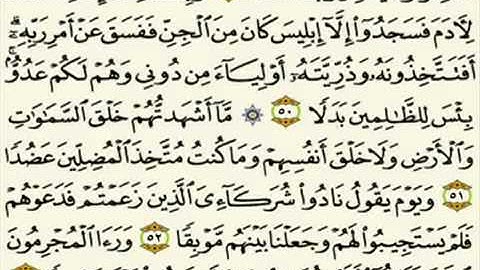 لِأَدَمَ فَسَجَدُوٓا۟ إِلَّآ إِبْلِيسَ كَانَ مِنَ ٱلْجِنِّ فَفَسَقَ عَنْ أَمْرِ رَبِّهِۦٓ ۗ
أَفَتَتَّخِذُونَهُۥ وَذُرِّيَّتَهُۥٓ أَوْلِيَآءَ مِن دُونِى وَهُمْ لَكُمْ عَدُوٌّۢ ۚ
بِئْسَ لِلظَّٰلِمِينَ بَدَلًا ٥٠ ۞ مَّآ أَشْهَدتُّهُمْ خَلْقَ ٱلسَّمَٰوَٰتِ
وَٱلْأَرْضِ وَلَا خَلْقَ أَنفُسِهِمْ وَمَا كُنتُ مُتَّخِذَ ٱلْمُضِلِّينَ عَضُدًا
٥١ وَيَوْمَ يَقُولُ نَادُوا۟ شُرَكَآءِىَ ٱلَّذِينَ زَعَمْتُمْ فَدَعَوْهُمْ
فَلَمْ يَسْتَجِيبُوا۟ لَهُمْ وَجَعَلْنَا بَيْنَهُم مَّوْبِقًا ٥٢ وَرَءَا ٱلْمُجْرِمُونَ